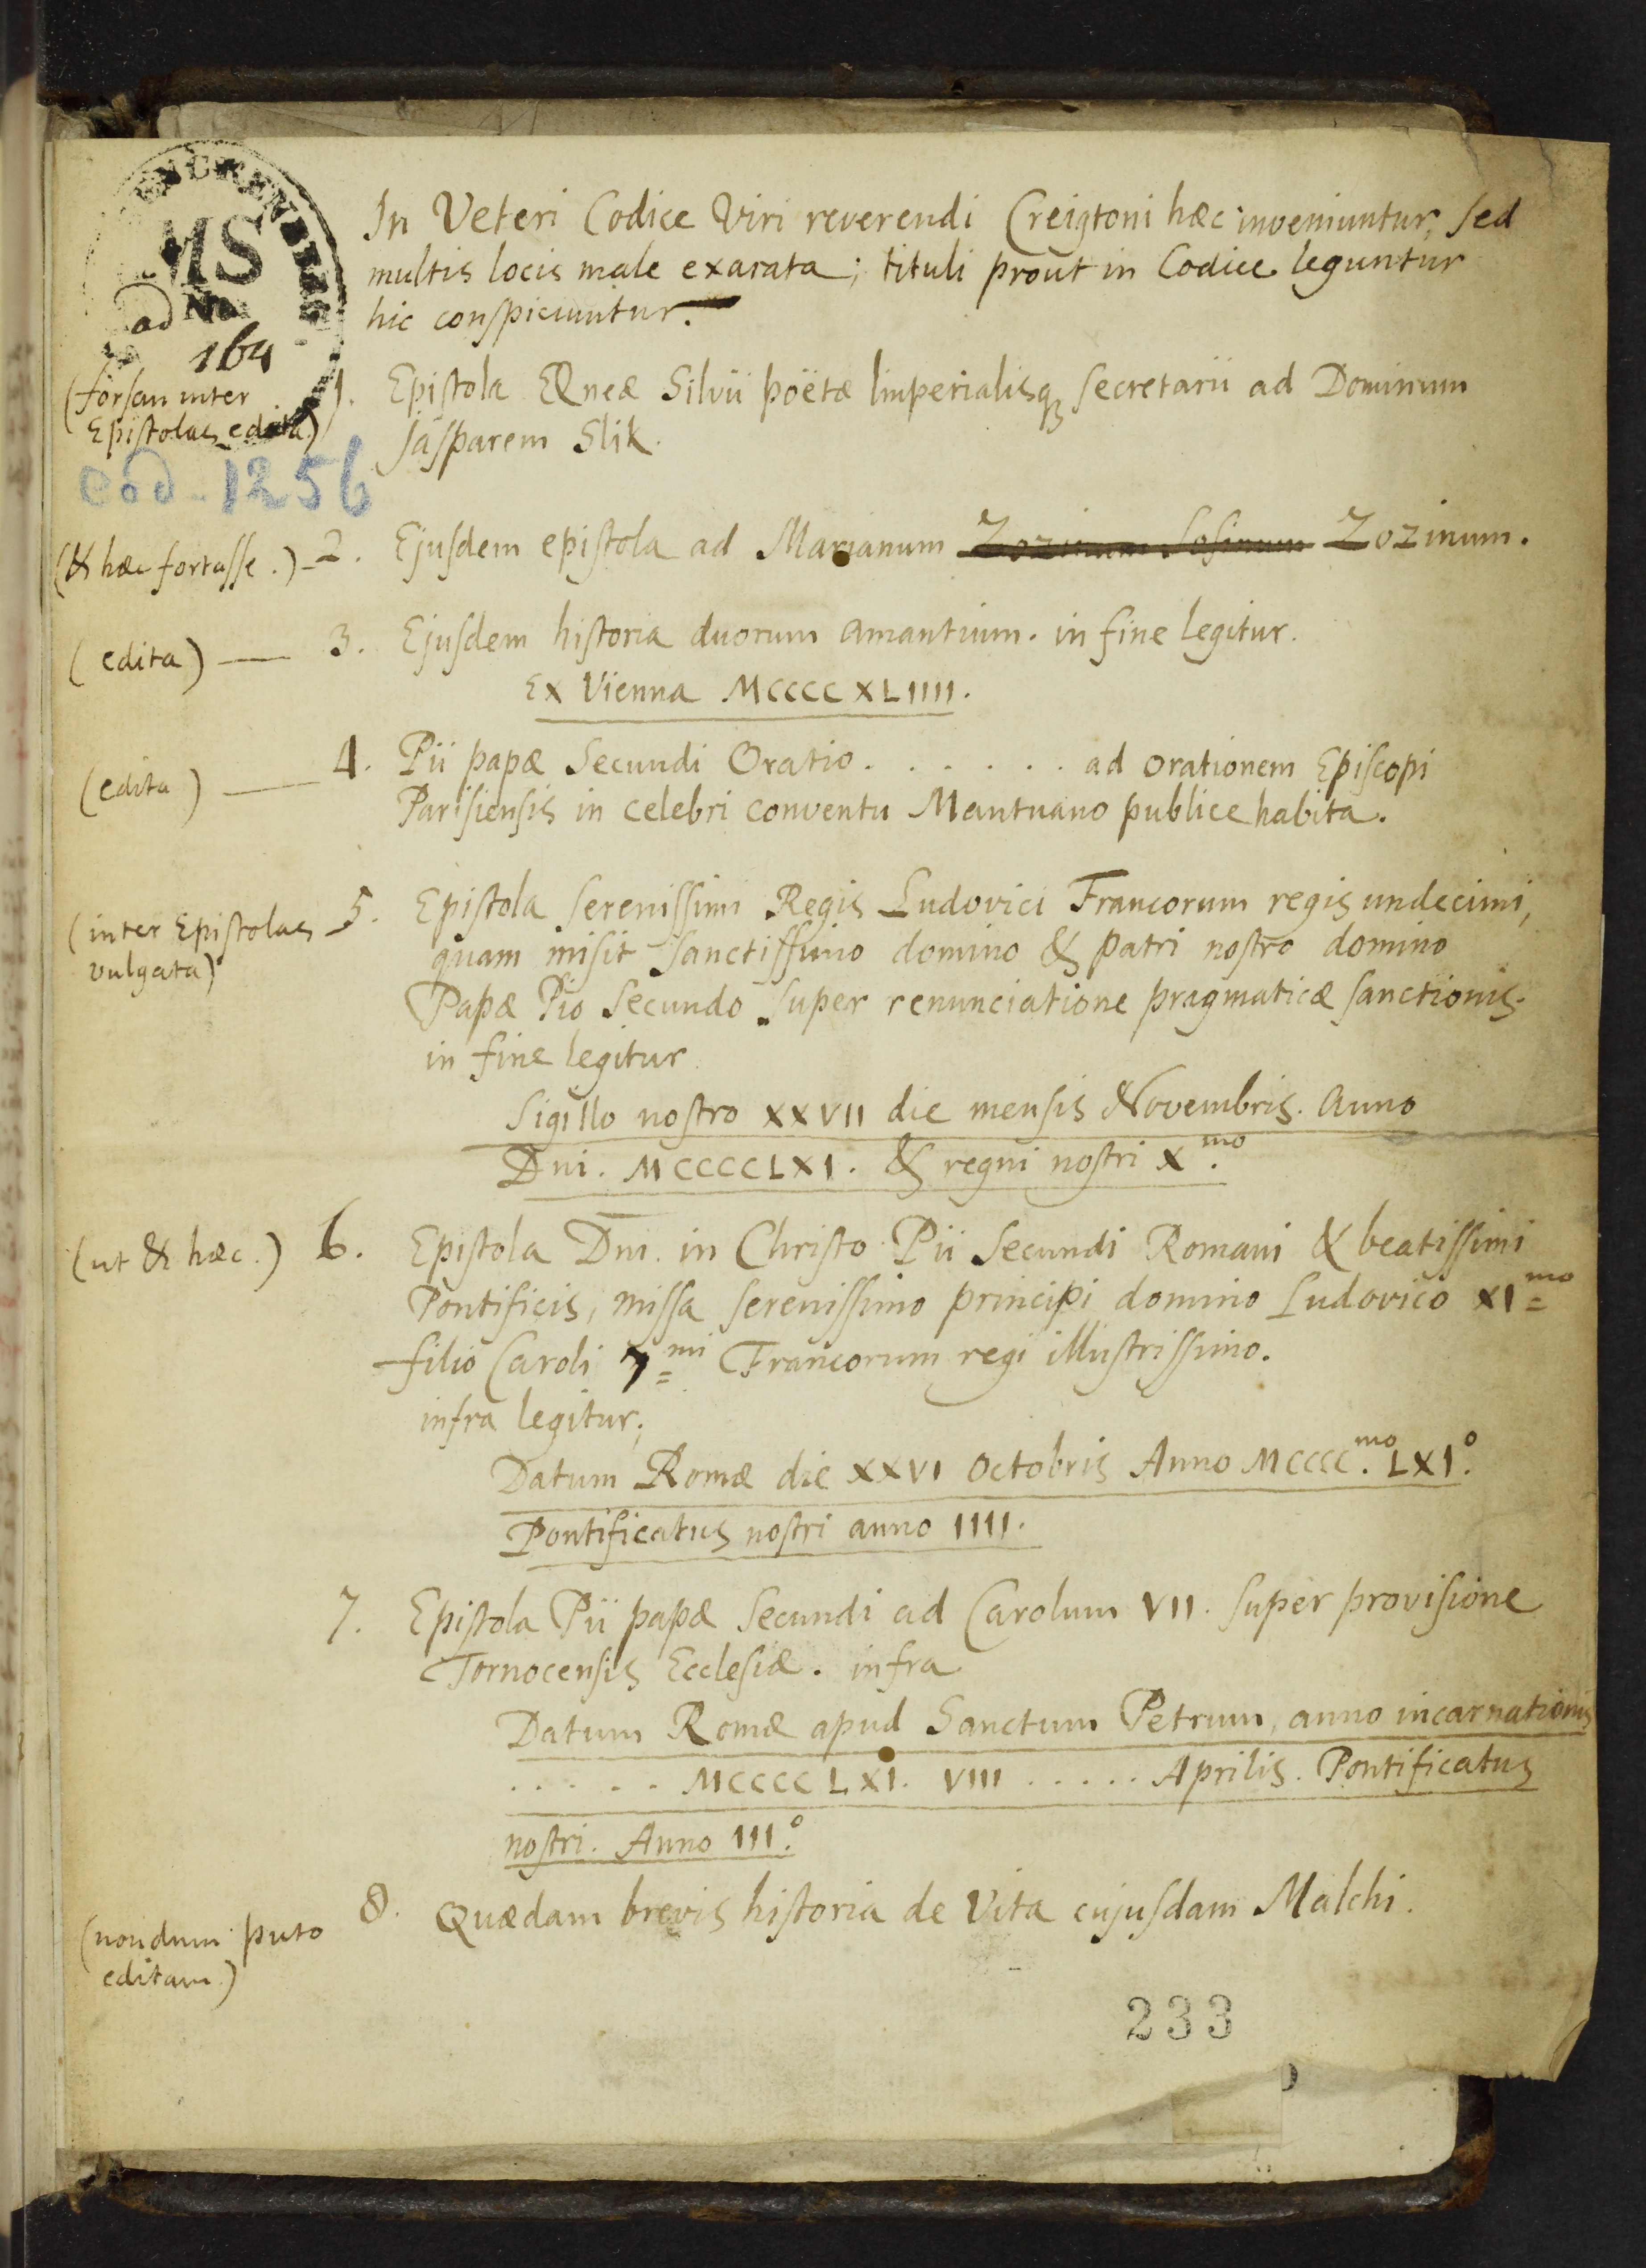 MS
ad No
164
In Veteri Codice Viri reverendi Creigtoni hæc inveniuntur, sed
multis locis male exarata; tituli prout in Codice leguntur
hic conspiciuntur.
(forsan inter
Epistolas edita)
1. Epistola Æneæ Silvii poëtæ Imperialisq; secretarii ad Dominum
Jasparem Slik.
cod. 1256
(& hæc fortasse.) - 2. Ejusdem epistola ad Marianum Zozinum Sosinum Zozinum.
(edita) — 3. Ejusdem historia duorum amantium. in fine legitur.
Ex Vienna MCCCCXLIIII.
(edita) — 4. Pii papæ Secundi Oratio. . . . . . . ad orationem Episcopi
Parisiensis in celebri conventu Mantuano publice habita.
(inter Epistolas
vulgata)
5. Epistola serenissimi Regis Ludovici Francorum regis undecimi,
quam misit sanctissimo domino & patri nostro domino
Papæ Pio Secundo super renunciatione pragmaticæ sanctionis.
in fine legitur
Sigillo nostro XXVII die mensis Novembris. Anno
Dni. MCCCCLXI. & regni nostri X.mo
(ut & hæc.) 6. Epistola Dni. in Christo Pii Secundi Romani & beatissimi
Pontificis, missa serenissimo principi domino Ludovico XI=mo
filio Caroli 7=mi Francorum regi illustrissimo.
infra legitur;
Datum Romæ die XXVI Octobris Anno MCCCC.mo LXI.o
Pontificatus nostri anno IIII.
7. Epistola Pii papæ Secundi ad Carolum VII. super provisione
Tornocensis Ecclesiæ. infra
Datum Romæ apud Sanctum Petrum, anno incarnationis
. . . . . MCCCCLXI. VIII . . . . . Aprilis. Pontificatus
nostri. Anno III.o
(nondum puto
editam.)
8. Quædam brevis historia de Vita cujusdam Malchi.
233